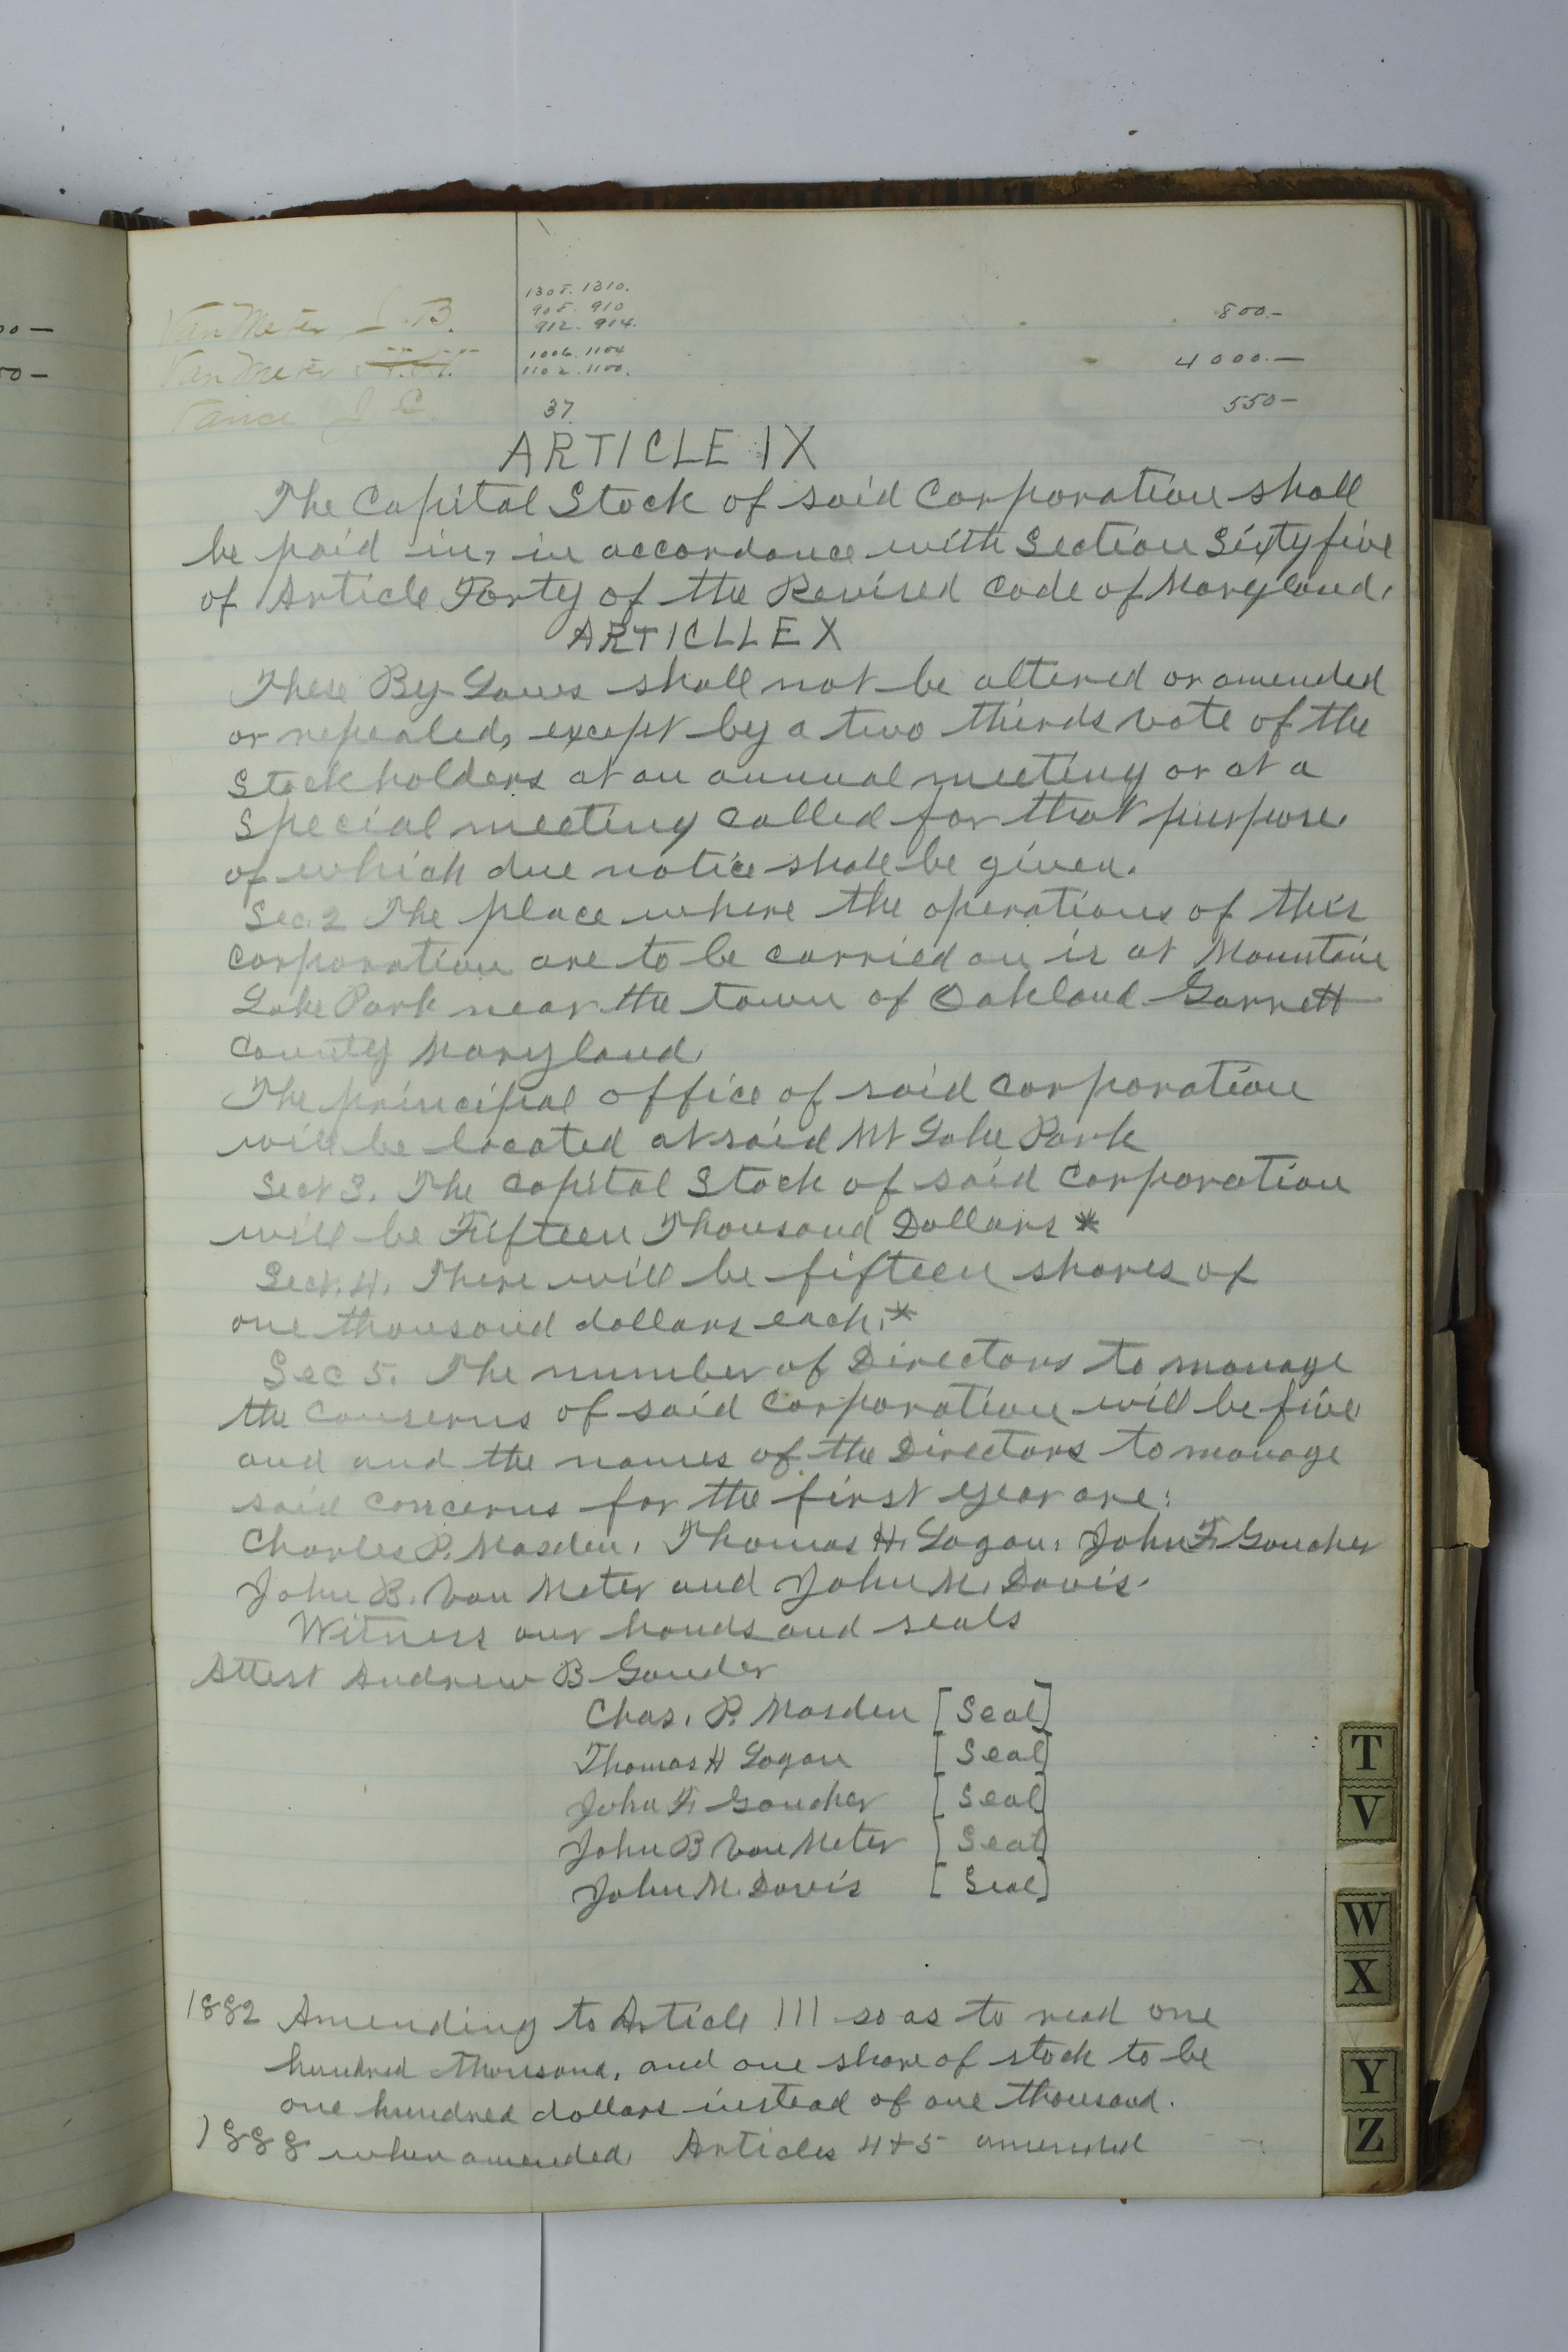 00—
1305. 1310.
905. 910
Van Meter J. B. 912. 914. 800.—
1006. 1104
00—
Van Meter 1102. 1100. 4000.—
Vance J C. 37 550—
ARTICLE IX
The Capital Stock of said Corporation shall
be paid in, in accordance with Section Sixty five
of Article Forty of the Revised Code of Maryland.
ARTICLLE X
These By-Laws shall not be altered or amended
or repealed, except by a two thirds vote of the
Stockholders at an annual meeting or at a
Special meeting called for that purpose
of which due notice shall be given.
Sec. 2 The place where the operations of this
corporation are to be carried on is at Mountain
Lake Park near the town of Oakland Garrett
County Maryland.
The principal office of said corporation
will be located at said Mt Lake Park
Sect 3. The Capital Stock of said Corporation
will be Fifteen Thousand Dollars *
Sect. 4. There will be fifteen shares of
one thousand dollars each.*
Sec 5. The number of Directors to manage
the conserns of said Corporation will be five
and and the names of the Directors to manage
said concerns for the first year are:
Charles P. Masden, Thomas H. Logan, John F. Goucher
John B. Van Meter and John M. Davis.
Witness our hands and seals
Attest Andrew B Gonder
Chas. P. Masden [Seal]
Thomas H Logan [Seal]
John F. Goucher [Seal]
John B Van Meter [Seal]
John M. Davis [Seal]
1882 Amending to Article III so as to read one
hundred thousand, and one share of stock to be
one hundred dollars instead of one thousand.
1888 when amended. Articles 4+5 amended
T
V
W
X
Y
Z